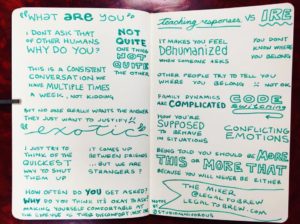 "WHAT ARE YOU"
I DON'T ASK THAT
OF OTHER HUMANS
WHY DO YOU?
NOT
QUITE
ONE THING
NOT
QUITE
THE OTHER
THIS IS A CONSISTENT
CONVERSATION WE
HAVE MULTIPLE TIMES
A WEEK, NOT KIDDING
BUT NO ONE REALLY WANTS THE ANSWER
THEY JUST WANT TO JUSTIFY
exotic
I JUST TRY TO
THINK OF THE
QUICKEST
WAY TO SHUT
THEM UP
IT COMES UP
BETWEEN FRIENDS
BUT WE ARE
STRANGERS?
HOW OFTEN DO YOU GET ASKED?
WHY DO YOU THINK IT'S OKAY TO ASK?
MAKING YOURSELF COMFORTABLE AT
THE EXPENSE OF THEIR DISCOMFORT, NOT OK
teaching responses VS IRE
IT MAKES YOU FEEL
DEHUMANIZED
WHEN SOMEONE ASKS
YOU DON'T
KNOW WHERE
YOU BELONG
OTHER PEOPLE TRY TO TELL YOU
WHERE YOU BELONG
FAMILY DYNAMICS
ARE COMPLICATED
CODE
SWITCHING
HOW YOU'RE
SUPPOSED
TO BEHAVE
IN SITUATIONS
CONFLICTING
EMOTIONS
BEING TOLD YOU SHOULD BE MORE
THIS OR MORE THAT
BECAUSE YOU WILL NEVER BE EITHER
THE MIXER